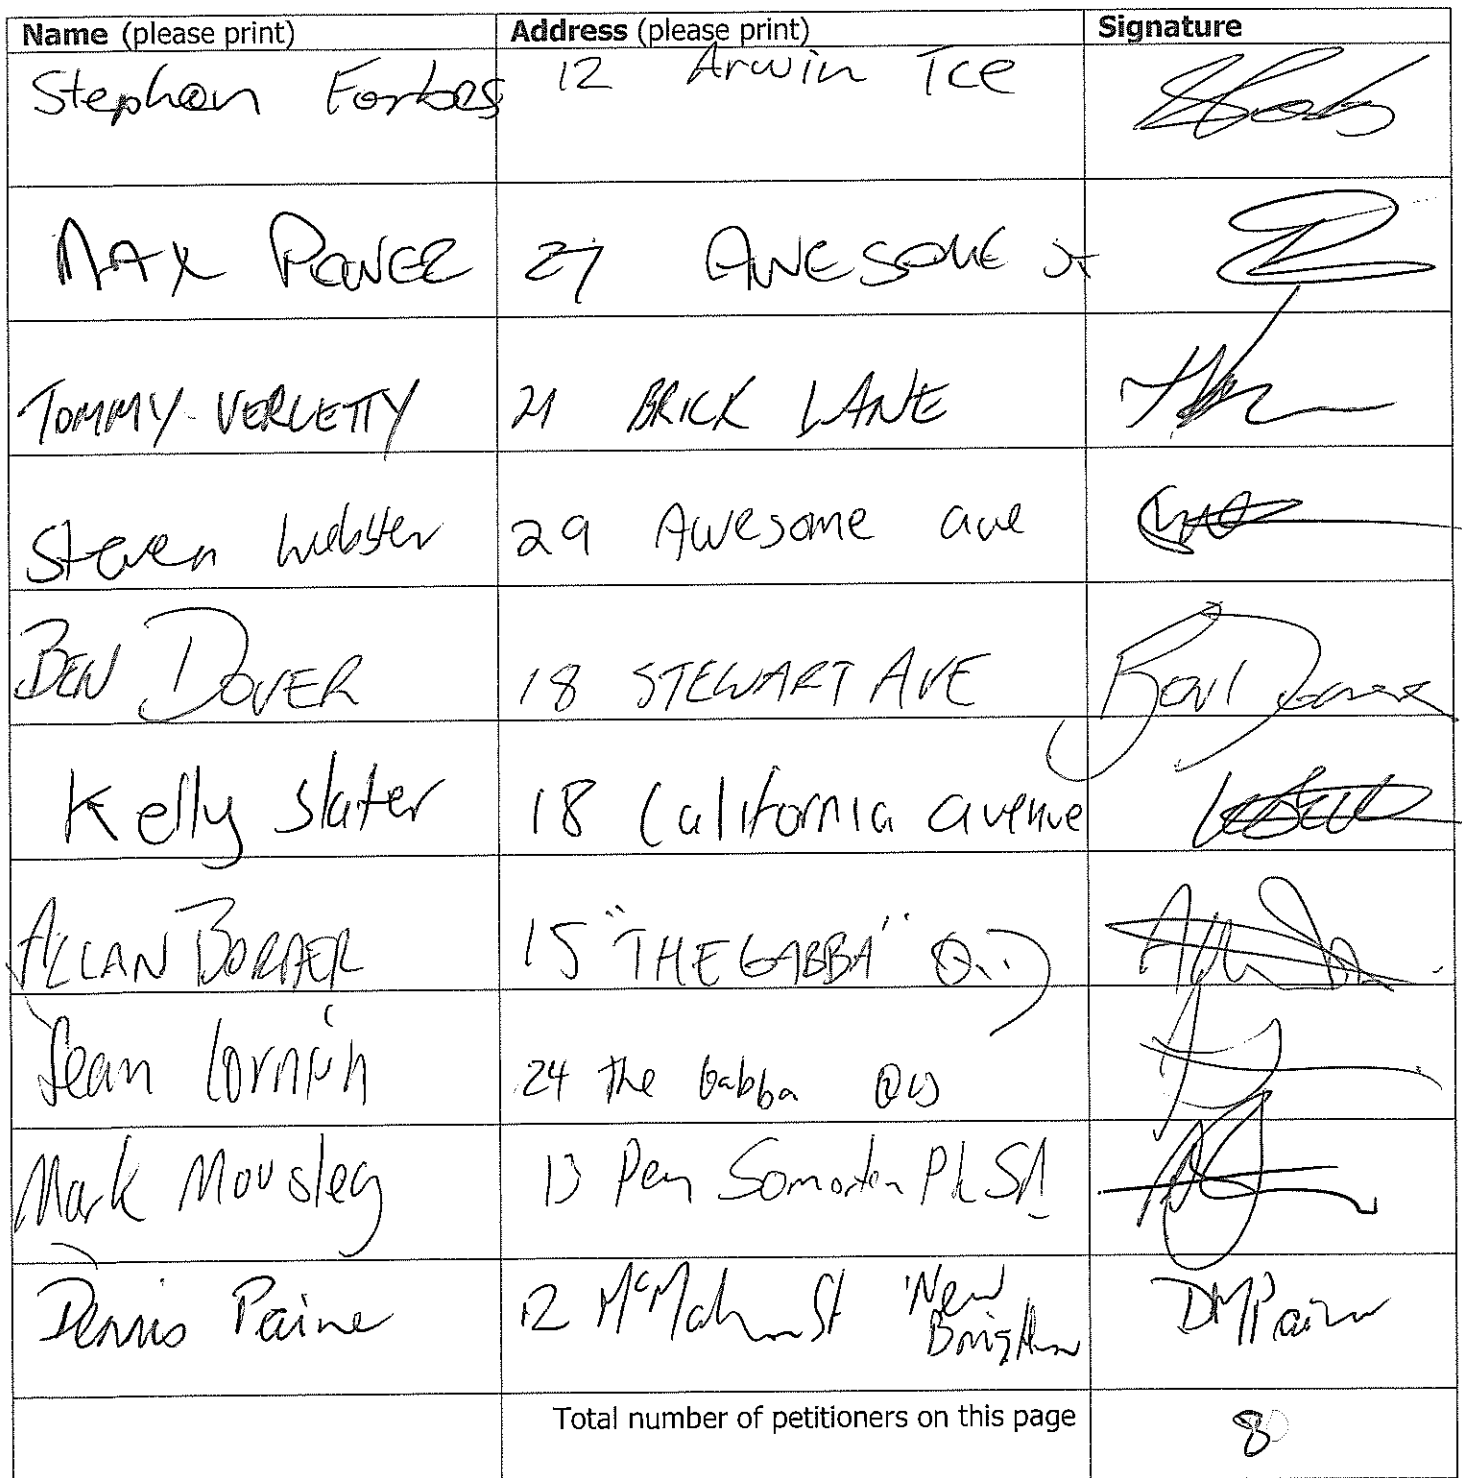 Name (please print) Address (please print) Signature
Stephen Forbes 12 Arwin Tce
MAX POWER 27 AWESOME St
TOMMY VERCETTY 21 BRICK LANE
Steven Webster 29 Awesome ave
BEN DOVER 18 STEWART AVE
Kelly Slater 18 California avenue
ALLAN BORDER 15 "THE GABBA"
Sean 24 the Gabba
Mark Mousley 13 Pl SA
Dennis Paine 12 McMahon St New Brighton DMPaine
Total number of petitioners on this page 8